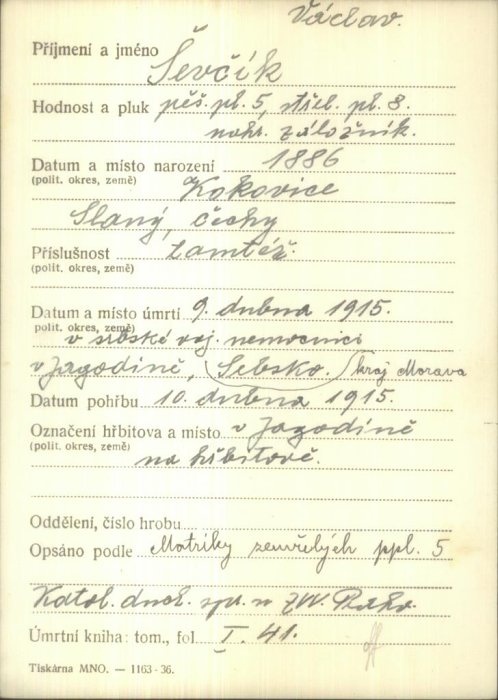 Václav.
Příjmení a jméno Ševčík
Hodnost a pluk pěš. pl. 5, střel. pl. 8.
náhr. záložník.
Datum a místo narození 1886
(polit. okres, země) Kokovice
Slaný, Čechy
Příslušnost tamtéž.
(polit. okres, země)
Datum a místo úmrtí 9. dubna 1915.
polit. okres, země)
v srbské voj. nemocnici
v Jagodině, Srbsko. kraj Morava
Datum pohřbu 10. dubna 1915.
Označení hřbitova a místo v Jagodině
(polit. okres, země) na hřbitově.
Oddělení, číslo hrobu
Opsáno podle Matriky zemřelých ppl. 5
Katol. duch. spr.
Úmrtní kniha: tom., fol. I. 41.
Tiskárna MNO. — 1163-36.